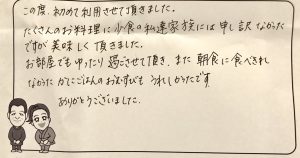 この度、初めて利用させて頂きました。
たくさんのお料理に小食の私達家族には申し訳なかった
ですが美味しく頂きました。
お部屋でもゆったり過ごさせて頂き、また朝食に食べきれ
なかった かにごはんのおむすびも うれしかったです
ありがとうございました。